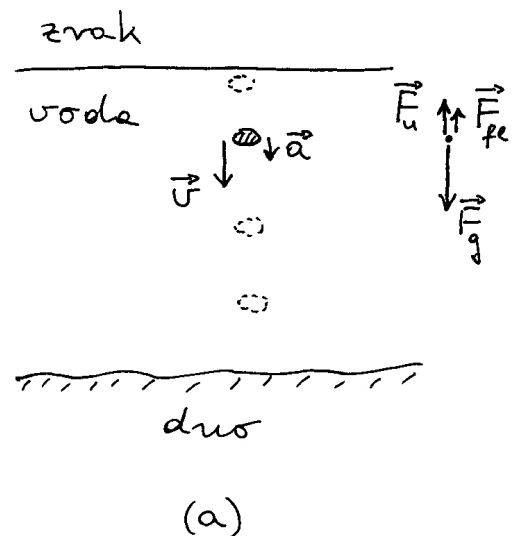 zrak
voda
a⃗
v⃗
F⃗u F⃗fl
F⃗g
dno
(a)